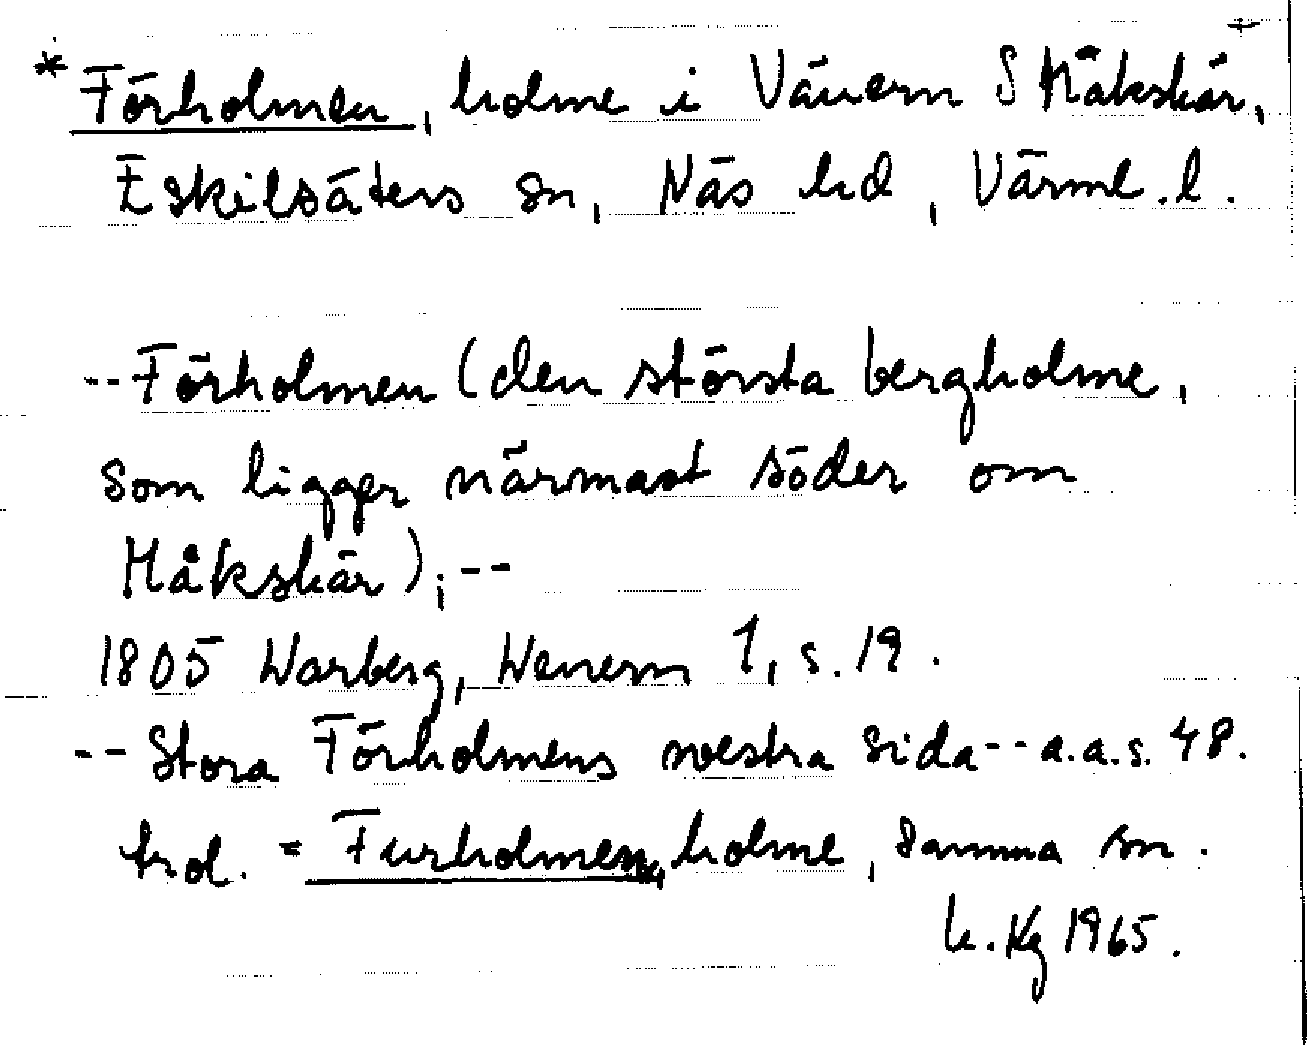 * Förholmen, holme i Vänern S Håkskär,
Eskilsäters sn, Näs hd, Värml. l.
--Förholmen (den största bergholme,
som ligger närmast söder om
Håkskär); --
1805 Warberg, Wenern 1, s. 19.
-- Stora Förholmens westra sida -- a.a.s. 48.
trol. = Furholmen, holme, samma sn.
K. Kg 1965.